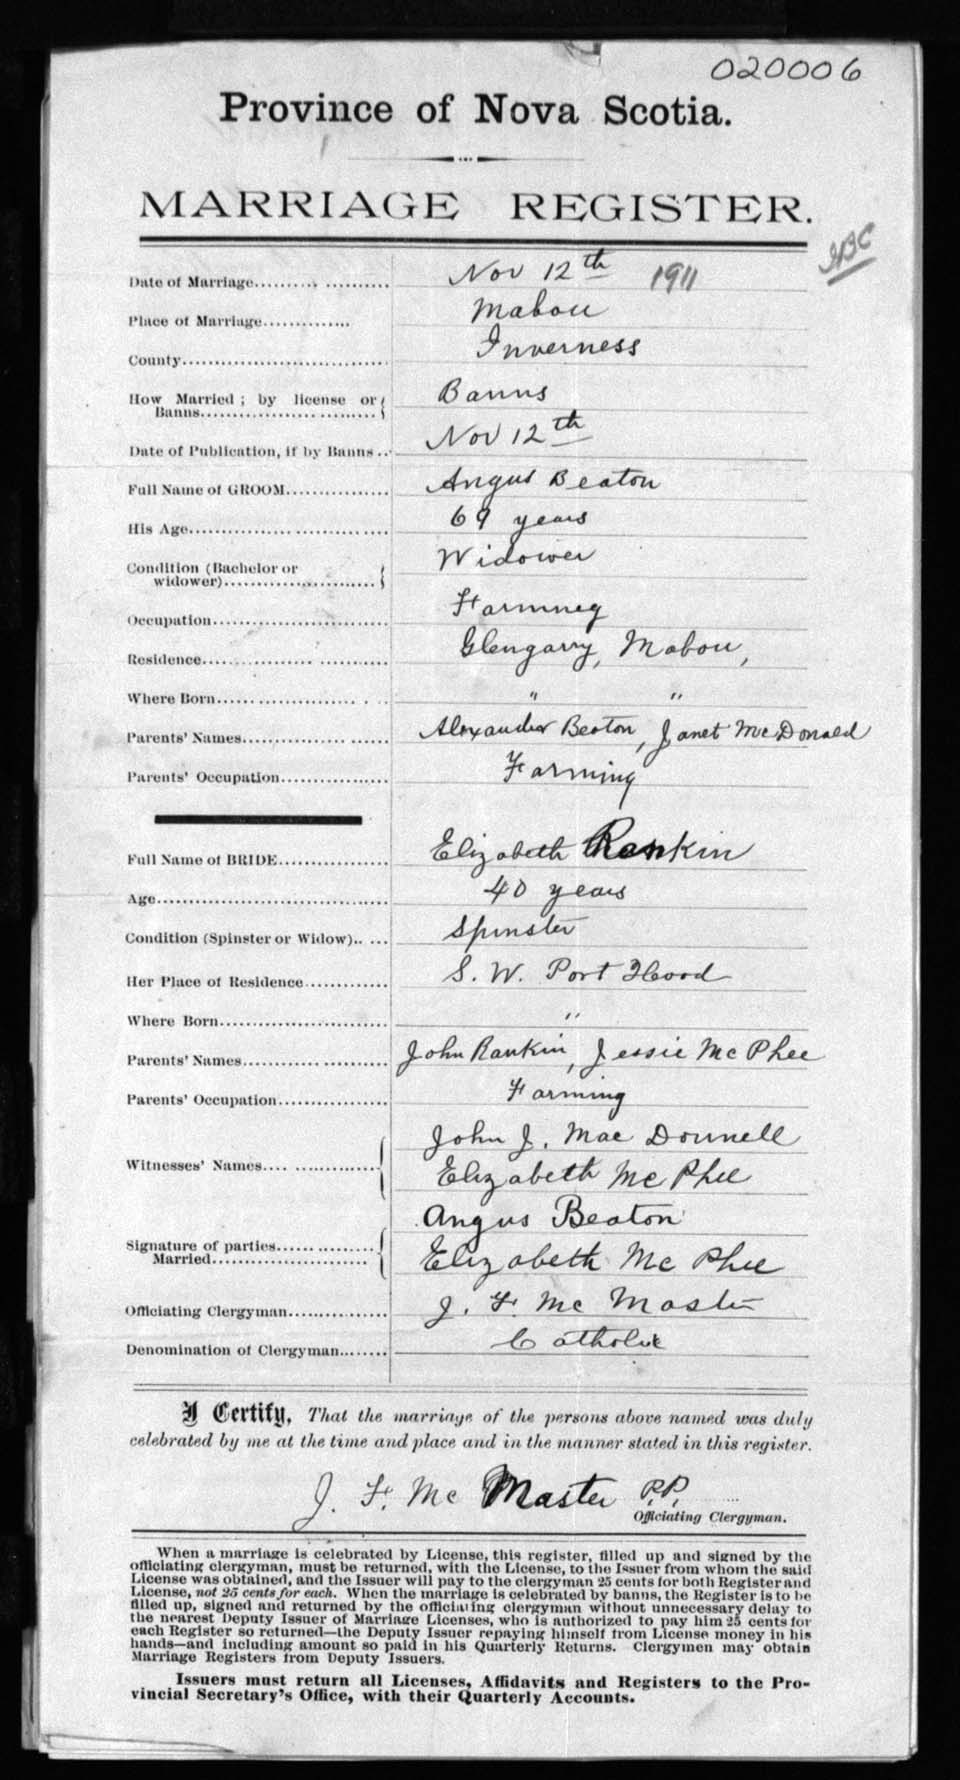 020006
Province of Nova Scotia.
MARRIAGE REGISTER.
Date of Marriage.......... Nov 12th 1911
Place of Marriage.............. Mabou
County................................. Inverness
How Married ; by license or
Banns............................ Banns
Date of Publication, if by Banns ... Nov 12th
Full Name of GROOM................ Angus Beaton
His Age................................ 69 years
Condition (Bachelor or
widower)........................ Widower
Occupation............................ Farmneg
Residence.............................. Glengarry, Mabou,
Where Born............................ " "
Parents' Names........................ Alexander Beaton, Janet McDonald
Parents' Occupation.................. Farming
Full Name of BRIDE................ Elizabeth Rankin
Age..................................... 40 years
Condition (Spinster or Widow)..... Spinster
Her Place of Residence............. S. W. Port Hood
Where Born........................... "
Parents' Names....................... John Rankin, Jessie McPhee
Parents' Occupation.................. Farming
John J. Mac Donnell
Witnesses' Names.................... Elizabeth McPhee
Angus Beaton
Signature of parties.................
Married........................... Elizabeth McPhee
Officiating Clergyman................ J. F. McMaster
Denomination of Clergyman........ Catholic
I Certify, That the marriage of the persons above named was duly
celebrated by me at the time and place and in the manner stated in this register.
J. F. McMaster P.P.
Officiating Clergyman.
When a marriage is celebrated by License, this register, filled up and signed by the
officiating clergyman, must be returned, with the License, to the Issuer from whom the said
License was obtained, and the Issuer will pay to the clergyman 25 cents for both Register and
License, not 25 cents for each. When the marriage is celebrated by banns, the Register is to be
filled up, signed and returned by the officiating clergyman without unnecessary delay to
the nearest Deputy Issuer of Marriage Licenses, who is authorized to pay him 25 cents for
each Register so returned—the Deputy Issuer repaying himself from License money in his
hands—and including amount so paid in his Quarterly Returns. Clergymen may obtain
Marriage Registers from Deputy Issuers.
Issuers must return all Licenses, Affidavits and Registers to the Pro-
vincial Secretary's Office, with their Quarterly Accounts.